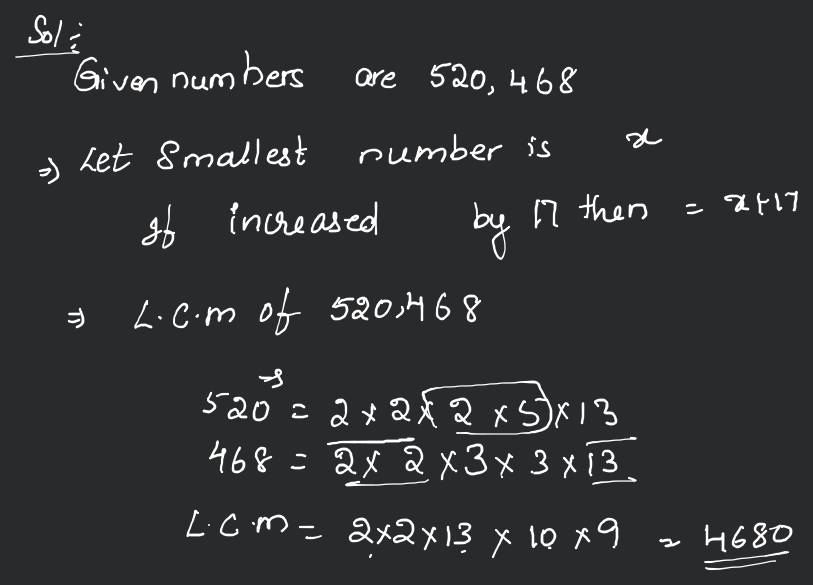 Sol :
Given numbers are 520, 468
⇒ Let Smallest number is x
If increased by 17 then = x+17
⇒ L.C.M of 520,468
520 = 2 x 2 x 2 x 5 x 13
468 = 2 x 2 x 3 x 3 x 13
L.C.M = 2x2x13 x 10 x 9 = 4680